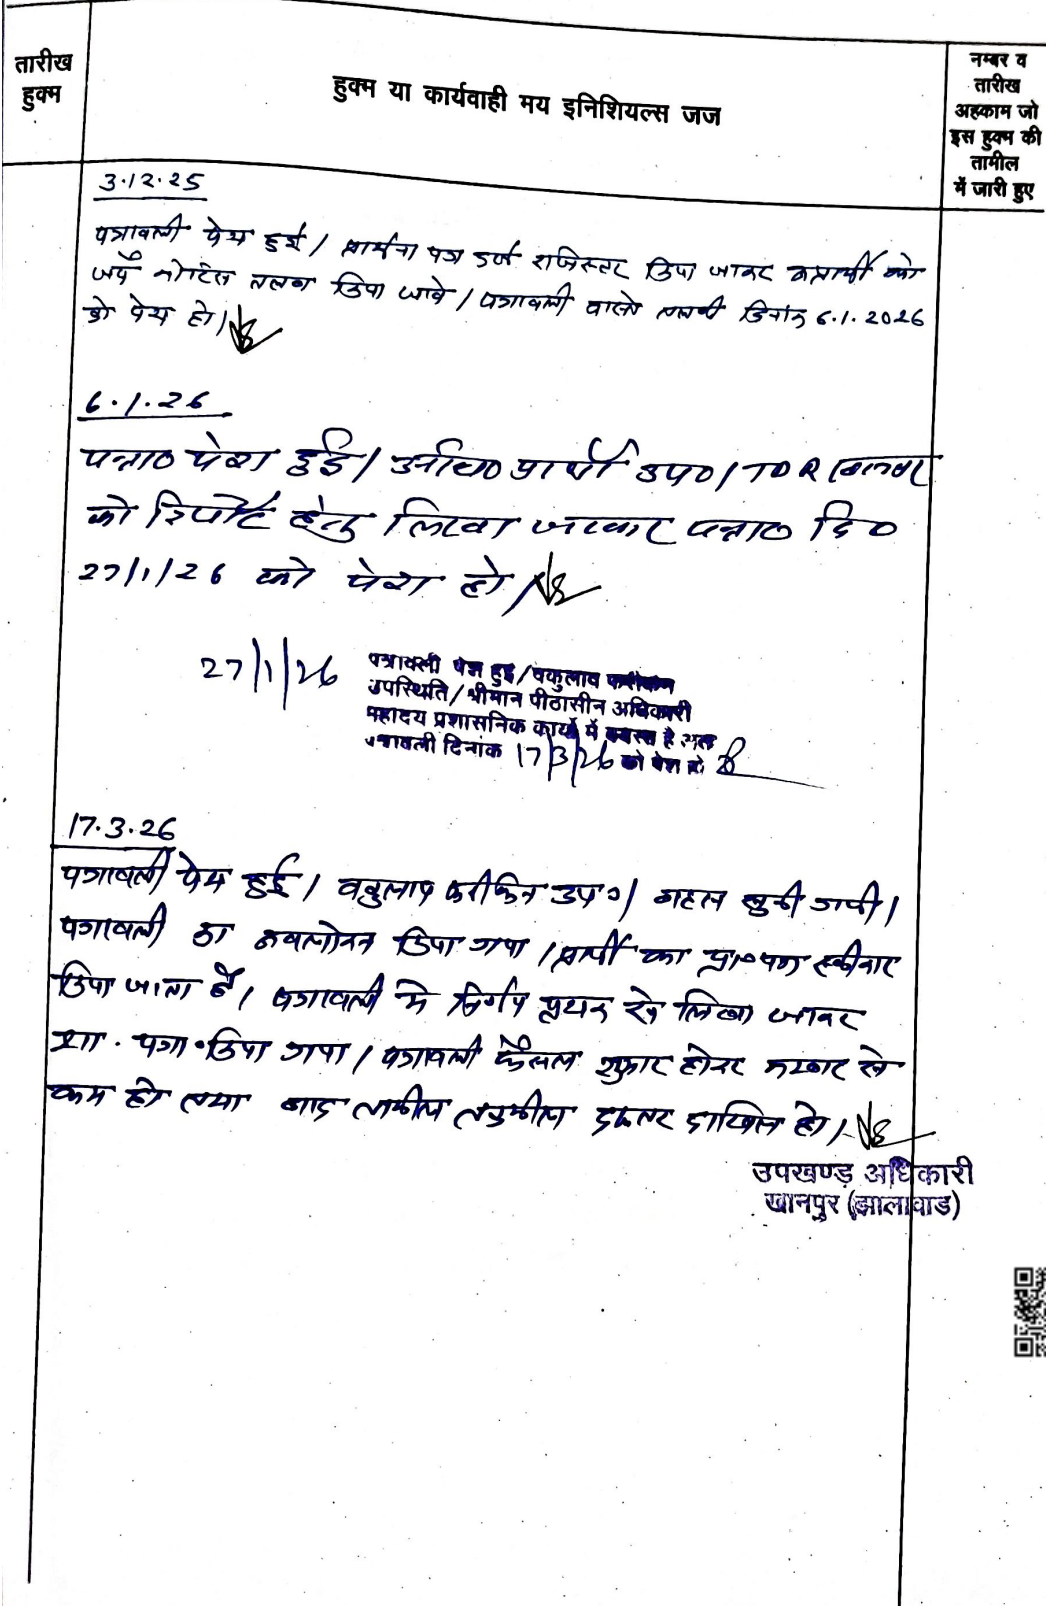 तारीख
हुक्म
हुक्म या कार्यवाही मय इनिशियल्स जज
नम्बर व
तारीख
अहकाम जो
इस हुक्म की
तामील
में जारी हुए
3.12.25
पत्रावली पेश हुई / प्रार्थना पत्र दर्ज रजिस्टर किया जाकर अप्रार्थी को
जर्ये नोटिस तलब किया जावे / पत्रावली वास्ते तलबी दिनांक 6.1.2026
को पेश हो /
6.1.26
पत्रा० पेश हुई / अधि० प्रार्थी उप० / TDR
को रिपोर्ट हेतु लिखा जाकर पत्रा० दि०
27/1/26 को पेश हो /
27/1/26
पत्रावली पेश हुई / वकुलाय फरीकेन
उपस्थिति / श्रीमान पीठासीन अधिकारी
महोदय प्रशासनिक कार्यो में व्यस्त है अतः
पत्रावली दिनांक 17/3/26 को पेश हो
17.3.26
पत्रावली पेश हुई / वकुलाय फरीकेन उप० / बहस सुनी गयी /
पत्रावली का अवलोकन किया गया / प्रार्थी का प्रा०पत्र स्वीकार
किया जाता है / पत्रावली मे निर्णय पृथक से लिखा जाकर
शा. पत्रा. किया गया / पत्रावली फैसल शुमार होकर नम्बर से
कम हो तथा बाद तामील तकमील दफ्तर दाखिल हो /
उपखण्ड अधिकारी
खानपुर (झालावाड)